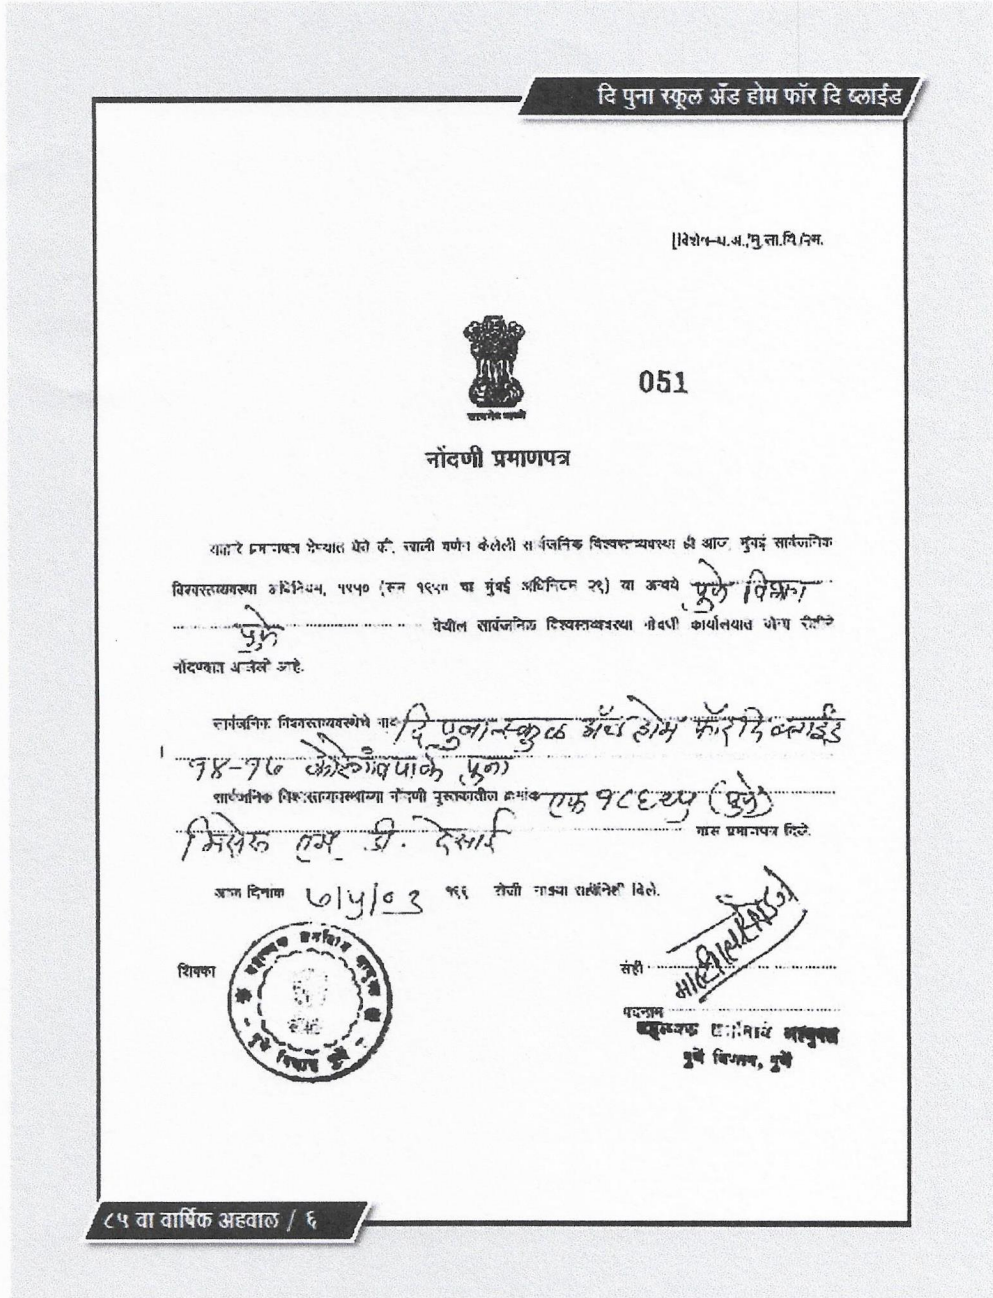 दि पुना स्कूल अँड होम फॉर दि ब्लाईंड
051
नोंदणी प्रमाणपत्र
याद्वारे प्रमाणपत्र देण्यात येते की, खाली वर्णन केलेली सार्वजनिक विश्वस्तव्यवस्था ही आज, मुंबई सार्वजनिक
विश्वस्तव्यवस्था अधिनियम, १९५० (सन १९५० चा मुंबई अधिनियम २९) या अन्वये पुणे विभाग
पुणे येथील सार्वजनिक विश्वस्तव्यवस्था नोंदणी कार्यालयात योग्य रीतीने
नोंदण्यात आलेली आहे.
सार्वजनिक विश्वस्तव्यवस्थेचे नाव दि पुना स्कुल अँड होम फॉर दि ब्लाईंड
१४-१७ कोरेगांव पार्क पुना
सार्वजनिक विश्वस्तव्यवस्थांच्या नोंदणी पुस्तकातील क्रमांक एफ (पुणे)
एम. डी. देसाई यास प्रमाणपत्र दिले.
आज दिनांक ७/५/०३ १९९ रोजी माझ्या सहीनिशी दिले.
शिक्का
पुणे विभाग पुणे
सही
पदनाम
पुणे विभाग, पुणे
८५ वा वार्षिक अहवाल / ६